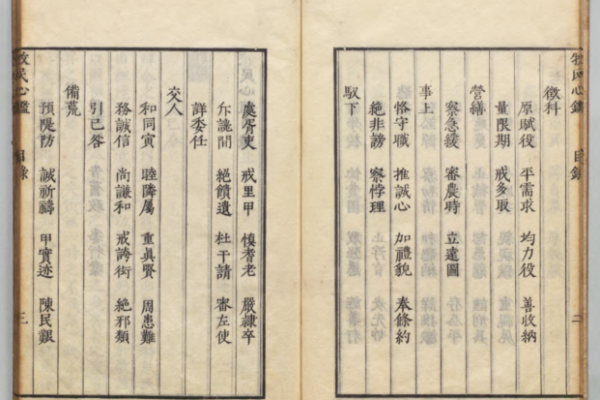 牧民心鑑 目錄 二
徵科
原賦役 平需求 均力役 善收納
量限期 戒多取
營繕
察急緩 審農時 立遠圖
事上
恪守職 推誠心 加禮貌 奉條約
絶非謗 察悖理
馭下
處胥吏 戒里甲 慎耆老 嚴隷卒
斥讒間 絶饋遺 杜干請 審左使
詳委任
交人
和同寅 睦隣屬 重眞賢 周患難
務誠信 尚謙和 戒誇衒 絶邪類
引己咎
備荒
預隄防 誠祈禱 甲實迹 陳民銀
牧民心鑑 目錄 三